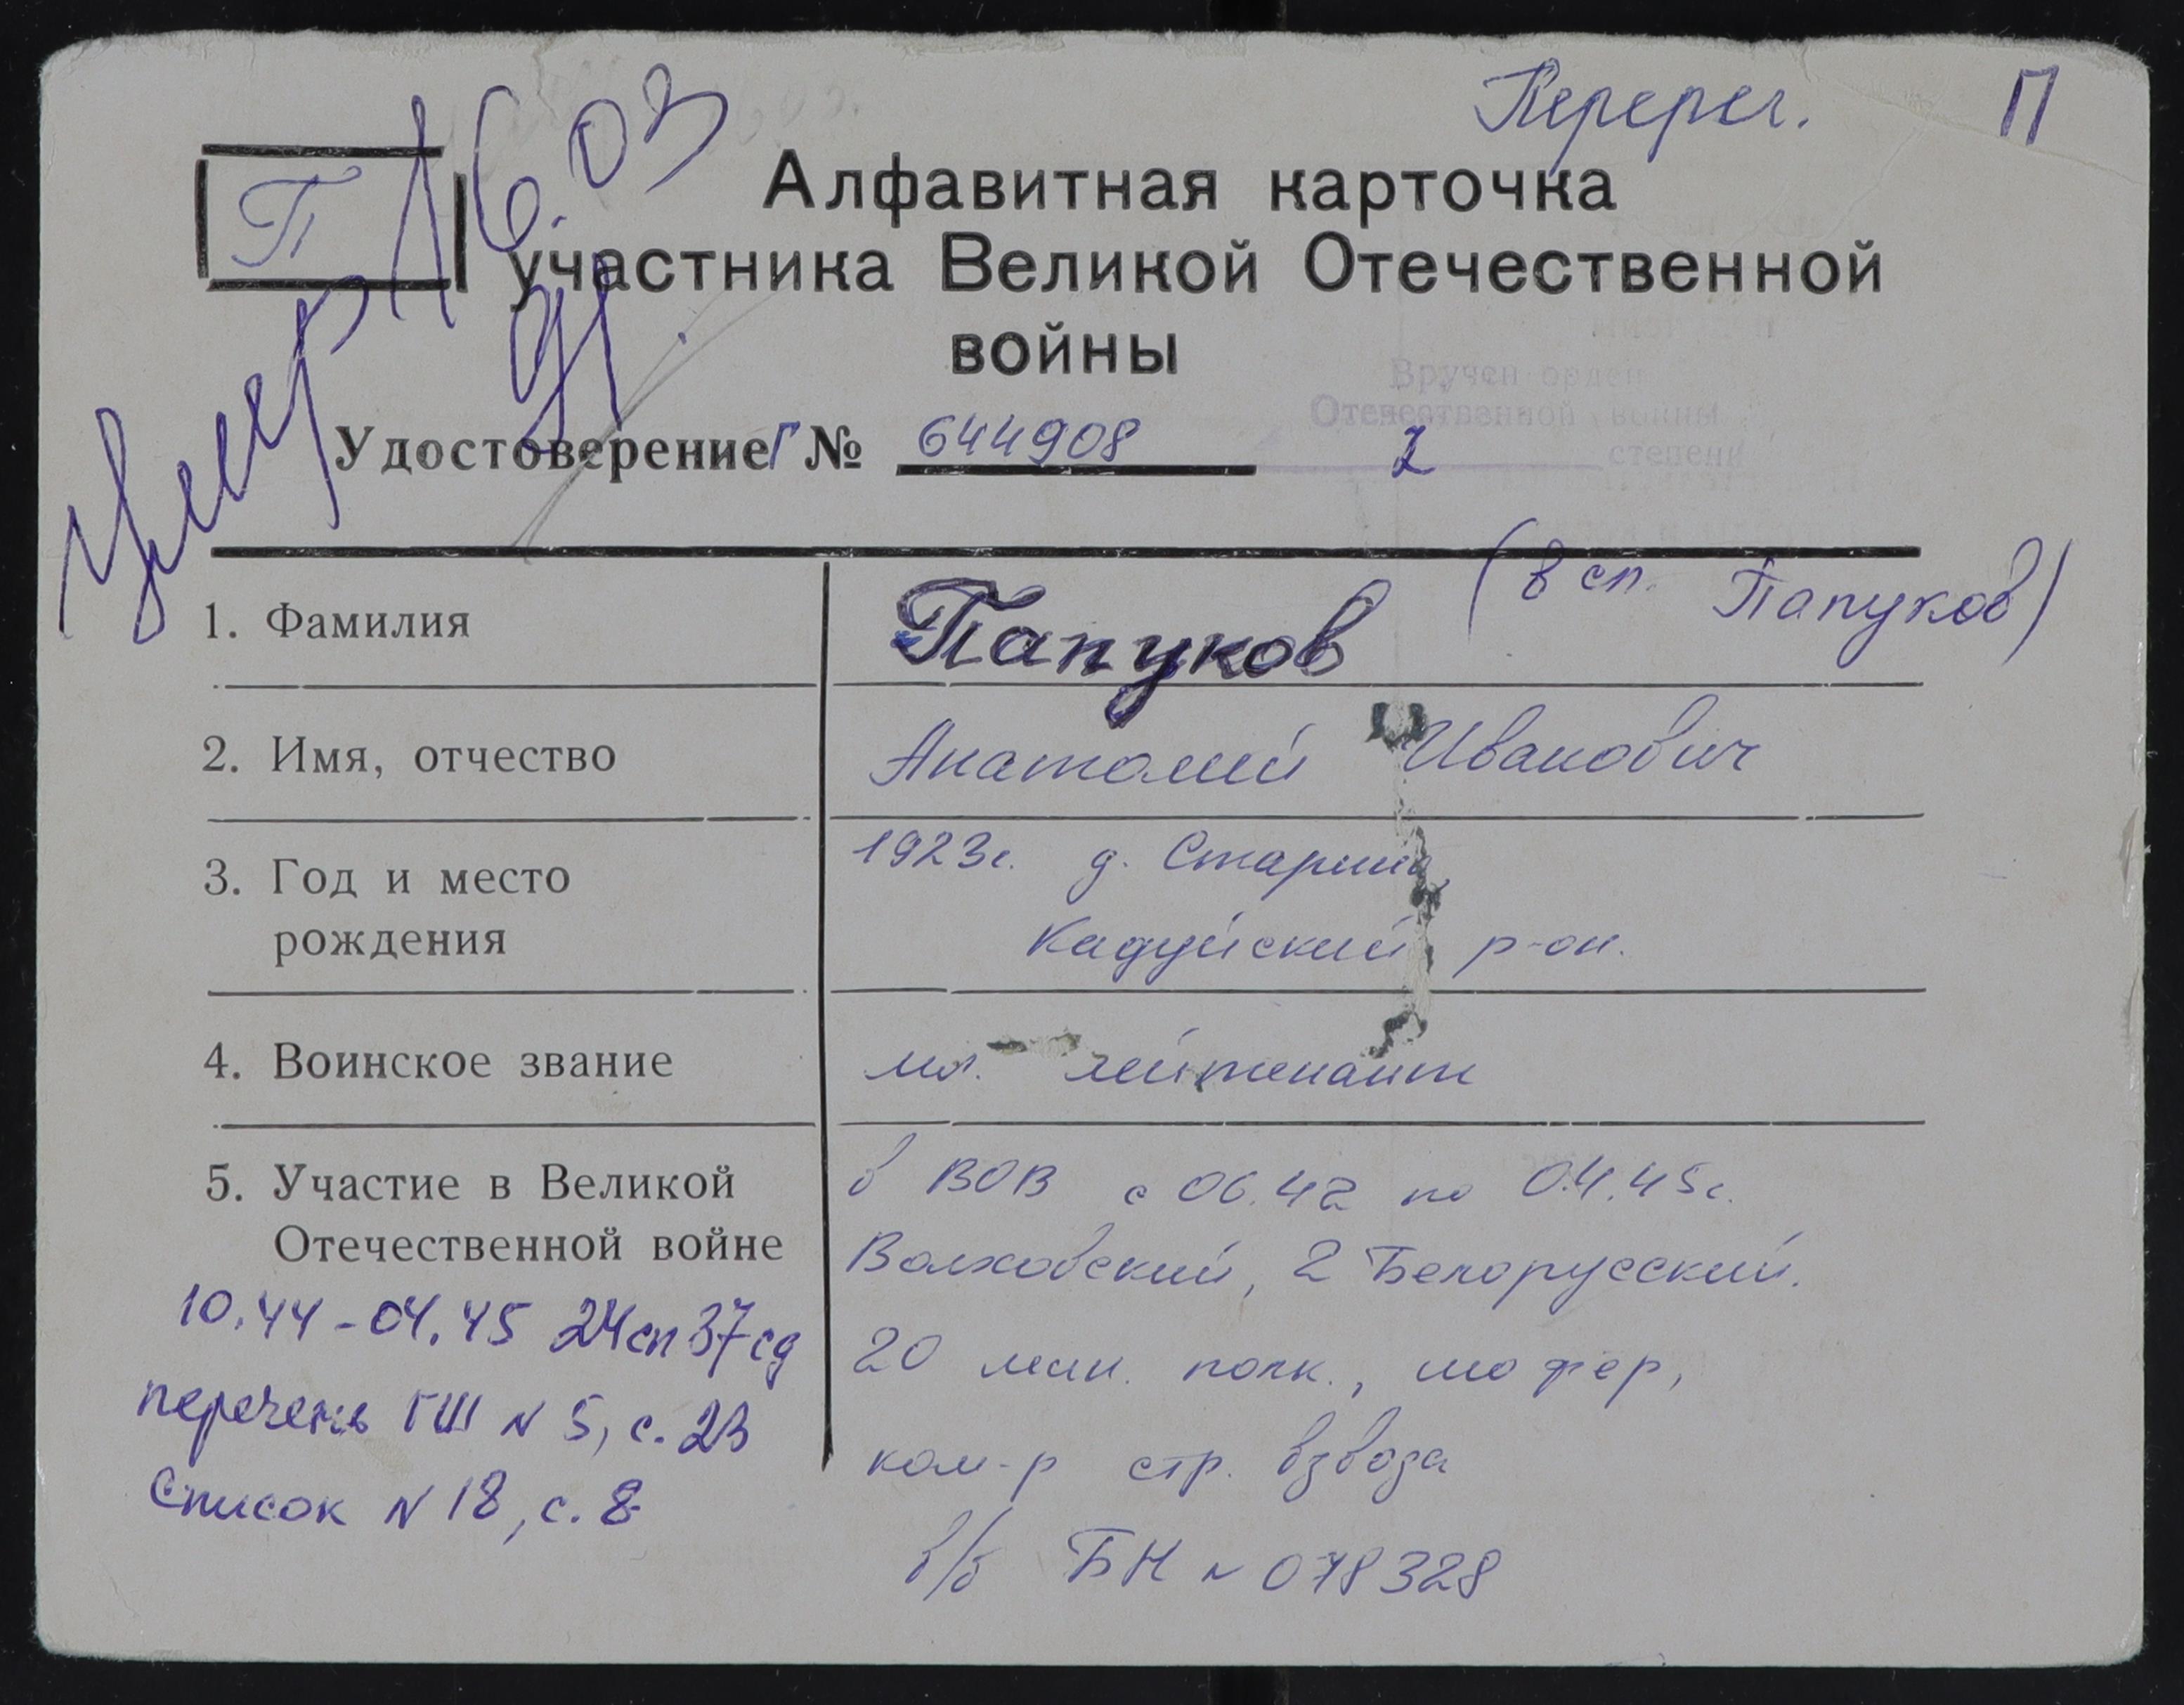 Перерег. П
П
умер 16.03
91
Алфавитная карточка
участника Великой Отечественной
войны
Вручен орден
Отечественной войны
2 степени
Удостоверение Г № 644908
1. Фамилия Папуков (в сп. Папуков)
2. Имя, отчество Анатолий Иванович
3. Год и место 1923г. д. Старина
рождения Кадуйский р-он.
4. Воинское звание мл. лейтенант
5. Участие в Великой в ВОВ с 06.42 по 04.45г.
Отечественной войне Волховский, 2 Белорусский.
10.44-04.45 24сп 37сд 20 мин. полк., шофер,
перечень ГШ N 5, с. 23 ком-р стр. взвода
Список N 18, с. 8 в/б БН N 078328